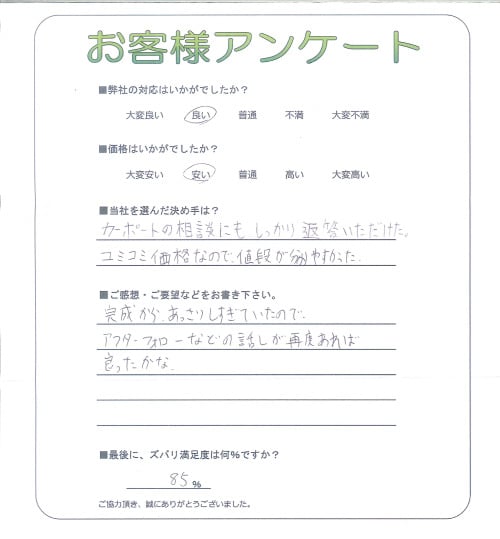 お客様アンケート
■弊社の対応はいかがでしたか？
大変良い　良い　普通　不満　大変不満
■価格はいかがでしたか？
大変安い　安い　普通　高い　大変高い
■当社を選んだ決め手は？
カーポートの相談にもしっかり返答いただけた。
コミコミ価格なので、値段が分りやすかった。
■ご感想・ご要望などをお書き下さい。
完成から、あっさりしすぎていたので、
アフターフォローなどの話しが再度あれば
良ったかな。
■最後に、ズバリ満足度は何％ですか？
85％
ご協力頂き、誠にありがとうございました。